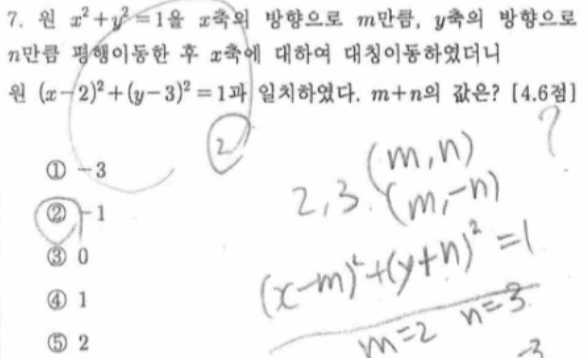 7. 원 x²+y²=1을 x축의 방향으로 m만큼, y축의 방향으로
n만큼 평행이동한 후 x축에 대하여 대칭이동하였더니
원 (x-2)²+(y-3)²=1과 일치하였다. m+n의 값은? [4.6점]
?
2
① -3
② -1
③ 0
④ 1
⑤ 2
(m,n)
2,3. (m,-n)
(x-m)²+(y+n)²=1
m=2 n=3
-3